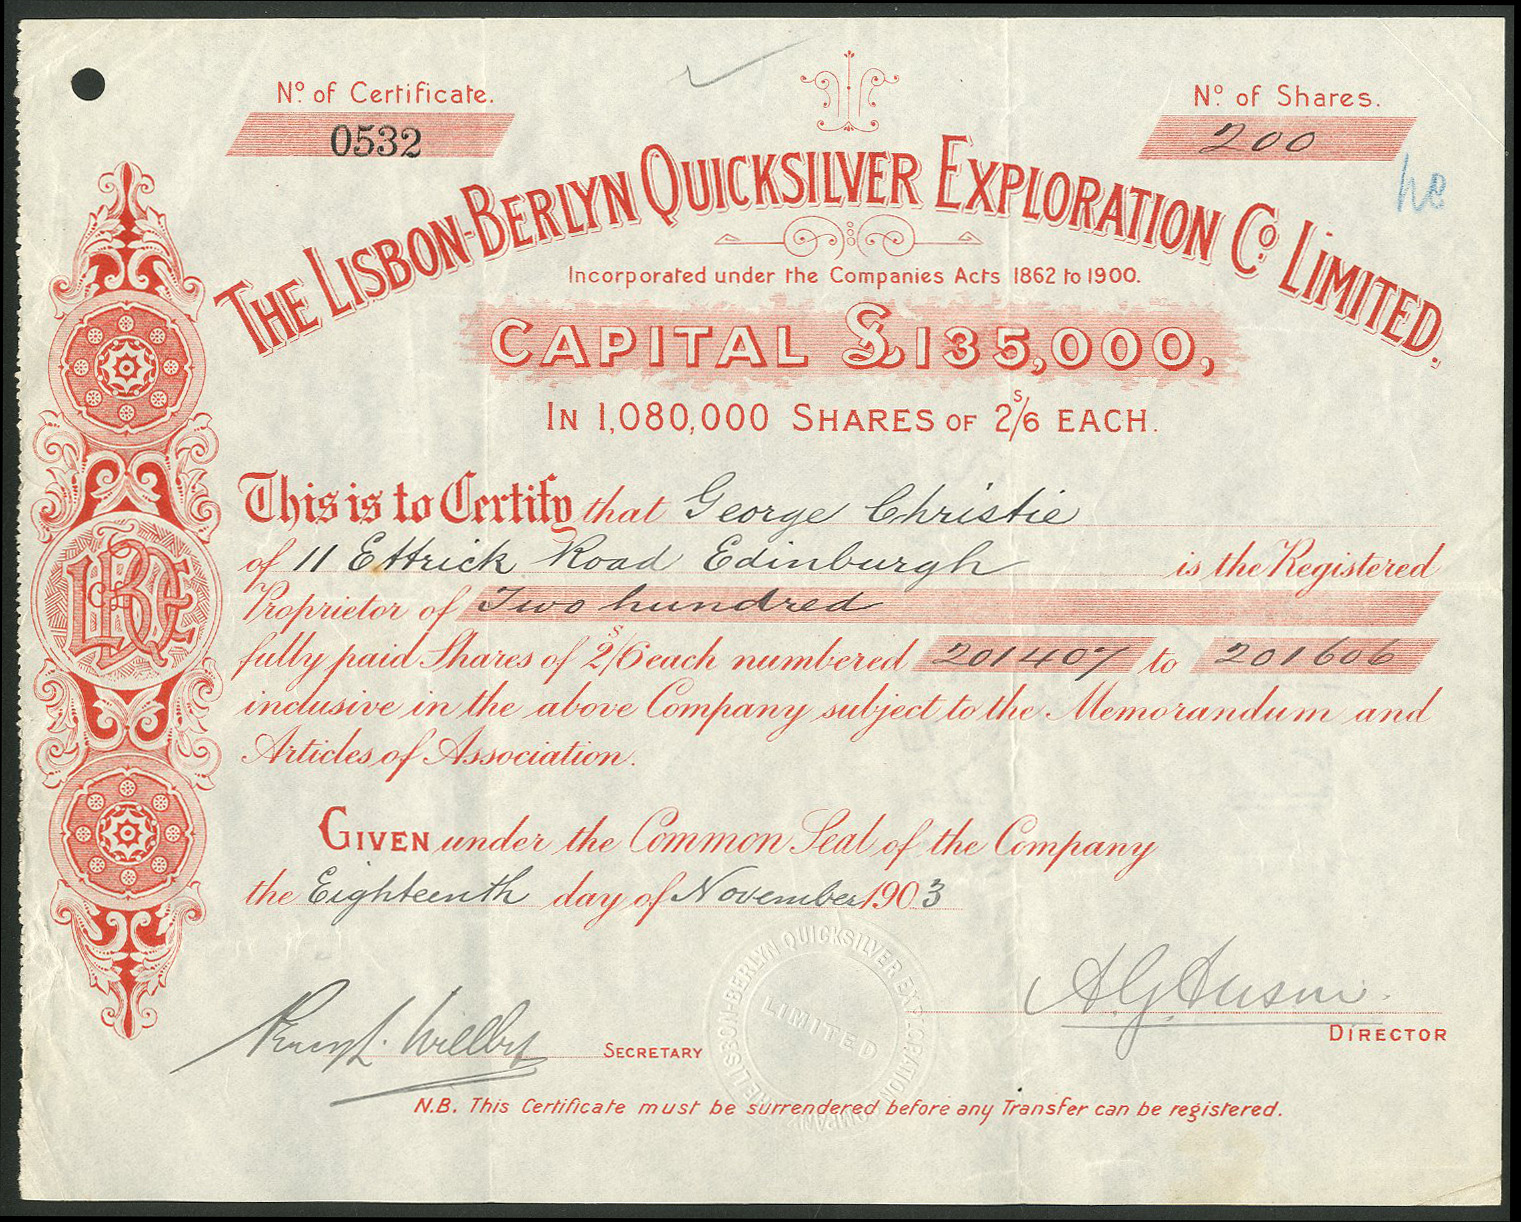 Nº of Certificate.
0532
Nº of Shares.
200
THE LISBON-BERLYN QUICKSILVER EXPLORATION Cº LIMITED.
Incorporated under the Companies Acts 1862 to 1900.
CAPITAL £135,000,
IN 1,080,000 SHARES OF 2s/6 EACH.
This is to Certify that George Christie
of 11 Ettrick Road Edinburgh is the Registered
Proprietor of Two hundred
fully paid Shares of 2s/6 each numbered 201407 to 201606
inclusive in the above Company subject to the Memorandum and
Articles of Association.
GIVEN under the Common Seal of the Company
the Eighteenth day of November 1903
THE LISBON-BERLYN QUICKSILVER EXPLORATION COMPANY
LIMITED
DIRECTOR
SECRETARY
N.B. This Certificate must be surrendered before any Transfer can be registered.